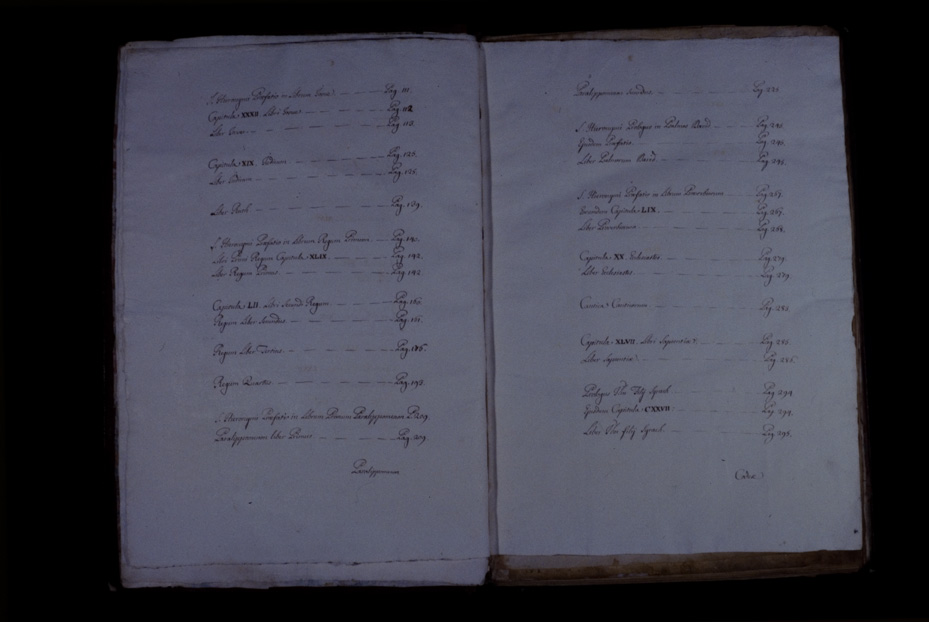 S. Hieronymi Præfatio in librum Josue — Pag. 111.
Capitula XXXII. Libri Josue — Pag. 112
Liber Josue — Pag. 113.
Capitula XIX. Judicum — Pag. 125.
Liber Judicum — Pag. 125.
Liber Ruth — Pag. 139.
S. Hieronymi Præfatio in librum Regum Primum — Pag. 141.
Libri Primi Regum Capitula XLIX — Pag. 142.
Liber Regum Primus — Pag. 142
Capitula LII. Libri Secundi Regum — Pag. 160.
Regum Liber Secundus — Pag. 161.
Regum Liber Tertius — Pag. 176.
Regum Quartus — Pag. 193.
S. Hieronymi Præfatio in Librum Primum Paralippomenon P. 209.
Paralippomenon liber Primus — Pag. 209
Paralippomenon
Paralippomenon Secundus — Pag. 221.
S. Hieronymi Prologus in Psalmos David — Pag. 241.
Ejusdem Præfatio — Pag. 245.
Liber Psalmorum David — Pag. 245.
S. Hieronymi Præfatio in librum Proverbiorum — Pag. 267.
Eorundem Capitula LIX. — Pag. 267.
Liber Proverbiorum — Pag. 268.
Capitula XX. Ecclesiastes — Pag. 279.
Liber Ecclesiastes — Pag. 279.
Cantica Canticorum — Pag. 283.
Capitula XLVII. Libri Sapientiæ — Pag. 285.
Liber Sapientiæ — Pag. 286.
Prologus Jesu Filij Syrach — Pag. 294
Ejusdem Capitula CXXVII — Pag. 294.
Liber Jesu filij Syrach — Pag. 296.